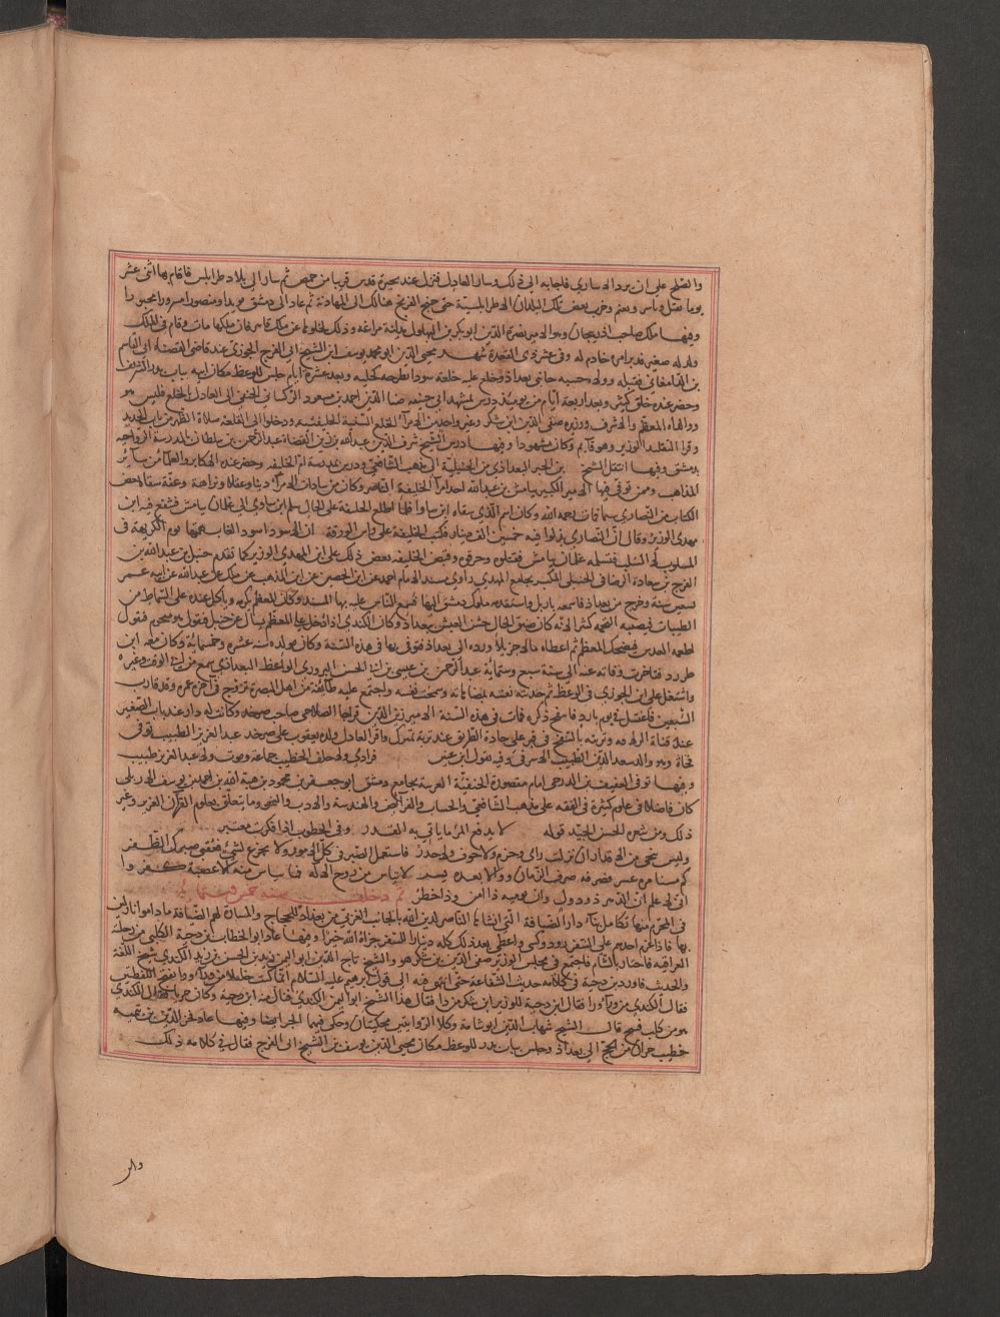 والصلح على ان يرد الاسارى فاجابه الى ذلك وسار العادل فنزل عند بحيرة قدس قريبا من حمص ثم سار الى بلاد طرابلس فاقام بها اثنى عشر
يوما يقتل وياسر ويغنم وخرب بعض تلك البلدان الاطرابلسية حتى جنح الفرنج هنالك الى المهادنة ثم عاد الى دمشق مؤيدا ومنصورا
وفيها ملك صاحب اذربيجان الامير نصرة الدين ابو بكر بن البهلول مدينة مراغه وذلك لخلوها عن ملك قاهر فان ملكها مات وقام في الملك
ولد له صغير فدبر امره خادم له وفي غرة ذي القعدة شهد محيي الدين ابو محمد يوسف ابن الشيخ ابي الفرج الجوزي عند قاضي القضاة ابي القاسم
بن الدامغاني فقبله وولاه حسبة جانبي بغداد وخلع عليه خلعة سودا بطرحة كحلية وبعد عشرة ايام جلس للوعظ مكان ابيه بباب بدر الشريف
وحضر عنده خلق كثير وبعد اربعة ايام من يومئذ درس بمشهد ابي حنيفة ضيا الدين احمد بن مسعود التركساني الحنفي الى العادل بالخلع فلبس هو
وولداه المعظم والاشرف ووزيره صفي الدين ابن شكر وغير واحد من الامرا الخلع السنية الخليفتية ودخلوا الى القلعة صلاة الظهر من باب الحديد
وقرا التقليد الوزير وهو قايم وكان مشهودا وفيها درس الشيخ شرف الدين عبد الله بن زين القضاة عبد الرحمن بن سلطان بالمدرسة الرواحية
بدمشق وفيها انتقل الشيخ بن الخير البغدادي من الحنبلية الى مذهب الشافعي ودرس بمدرسة ام الخليفة وحضر عنده الاكابر والعلما من سائر
المذاهب وممن توفي فيها الامير الكبير بنامش بن عبد الله احد امرا الخليفة الناصر وكان من سادات الامرا دينا وعقلا ونزاهة وعفة سقاه بعض
الكتاب من النصارى سما فمات رحمه الله وكان اسم الذي سقاه ابن ساوا فلما اطلع الخليفة على الحال سلم ابن ساوى الى غلمان بنامش فشفع فيه ابن
مهدي الوزير وقال ان النصارى بذلوا فيه خمسين الف دينار فكتب الخليفة على راس الورقة ان الاسود اسود الغاب همتها يوم الكريهة في
المسلوب لا السلب فتسلمه غلمان بنامش فقتلوه وحرقوه وقبض الخليفة بعض ذلك على ابن المهدي الوزير كما تقدم حنبل بن عبد الله بن
الفرج بن سعادة الرصافي الحنبلي المكبر بجامع المهدي راوي مسند الامام احمد عن ابن الحصين عن ابن المذهب عن ابن مالك عن عبد الله عن ابيه عمر
تسعين سنة وخرج من بغداد فاسمعه باربل واستقدمه ملوك دمشق اليها فسمع الناس عليه بها المسند وكان المعظم يكرمه وياكل عنده على السماط من
الطيبات فتصيبه التخمة كثيرا لانه كان ضيق الحال خشن العيش ببغداد وكان الكندي اذا دخل على المعظم يسال عن حنبل فيقول هو متخم فيقول
اطعمه العدس فيضحك المعظم ثم اعطاه مالا جزيلا ورده الى بغداد فتوفي بها في هذه السنة وكان مولده سنة عشرة وخمسمائة وكان معه ابن
طبرزد فتاخرت وفاته عنه الى سنة سبع وستمائة عبد الرحمن بن عيسى بن ابي الحسن البزوري الواعظ البغدادي سمع من ابن ابي الوقت وغيره
واشتغل على ابن الجوزي في الوعظ ثم حدثته نفسه بمضاهاته وشمخت نفسه واجتمع عليه طائفة من اهل البصرة ثم تزوج في اخر عمره وقد قارب
السبعين فاغتسل في يوم بارد فانتفخ ذكره فمات في هذه السنة الامير زين الدين قراجا الصلاحي صاحب صرخد وكانت له دار عند باب الصغير
عند قناة الزلاقه وتربته بالسفح في قبة على جادة الطريق عند تربة تمرك واقر العادل ولده يعقوب على صرخد عبد العزيز الطبيب توفي
فجاة وهو والد سعد الدين الطبيب الاشرفي وفيه يقول ابن عنين فرادي ولا خلف الخطيب جماعة وموت ولا عبد العزيز طبيب
وفيها توفي العفيف بن الدرجي امام مقصورة الحنفية الغربية بجامع دمشق ابو جعفر بن محمود بن هبة الله بن احمد بن يوسف الاربلي
كان فاضلا في علوم كثيرة في الفقه على مذهب الشافعي والحساب والفرائض والهندسة والادب والنحو وما يتعلق بعلوم القرآن العزيز وغير
ذلك ومن شعره الحسن الجيد قوله لا يدفع المر ما ياتي به القدر وفي الخطوب اذا فكرت معتبر
وليس ينجي من الاقدار ان نزلت راي وحزم ولا خوف ولا حذر فاستعمل الصبر في كل الامور ولا تجزع لشيء فعقبى صبرك الظفر
كم مسنا مرة عسر فصرفه صرف الزمان ووالا بعده يسر لا تياس من روح الاله فما يياس منه الا عصبة كفروا
اني لاعلم ان الدهر ذو دول وان يوميه ذا امن وذا خطر ثم دخلت سنة خمس وستمائة
في المحرم منها تكامل بنا دار الضيافة التي انشاها الناصر لدين الله بالجانب الغربي من بغداد للحجاج والمارة لهم الضيافة ما داموا نازلين
بها فاذا عزم احدهم على السفر زود وكسي واعطي بعد ذلك كله دينارا للسفر جزاه الله خيرا وفيها عاد ابو الخطاب بن دحية الكلبي من رحلته
العراقية فاجتاز بالشام فاجتمع في مجلس الوزير صفي الدين بن شكر هو والشيخ تاج الدين ابو اليمن زيد بن الحسن بن زيد الكندي شيخ اللغة
والحديث فاورد بن دحية في كلامه حديث الشفاعة حتى انتهى فيه الى قول ابراهيم عليه السلام انما كنت خليلا من وراء وراء بفتح اللفظتين
فقال الكندي من وراء وراء فقال ابن دحية للوزير ابن شكر من ذا فقال هذا الشيخ ابو اليمن الكندي فنال منه ابن دحية وكان جريا فقال الكندي
هو من كلب فينبح قال الشيخ شهاب الدين ابو شامة وكلا الروايتين محكيتان وحكي فيهما الجر ايضا وفيها عاد فخر الدين بن تيمية
خطيب حران من الحج الى بغداد وجلس بباب بدر للوعظ مكان محيي الدين يوسف بن الشيخ ابي الفرج فقال في كلامه ذلك